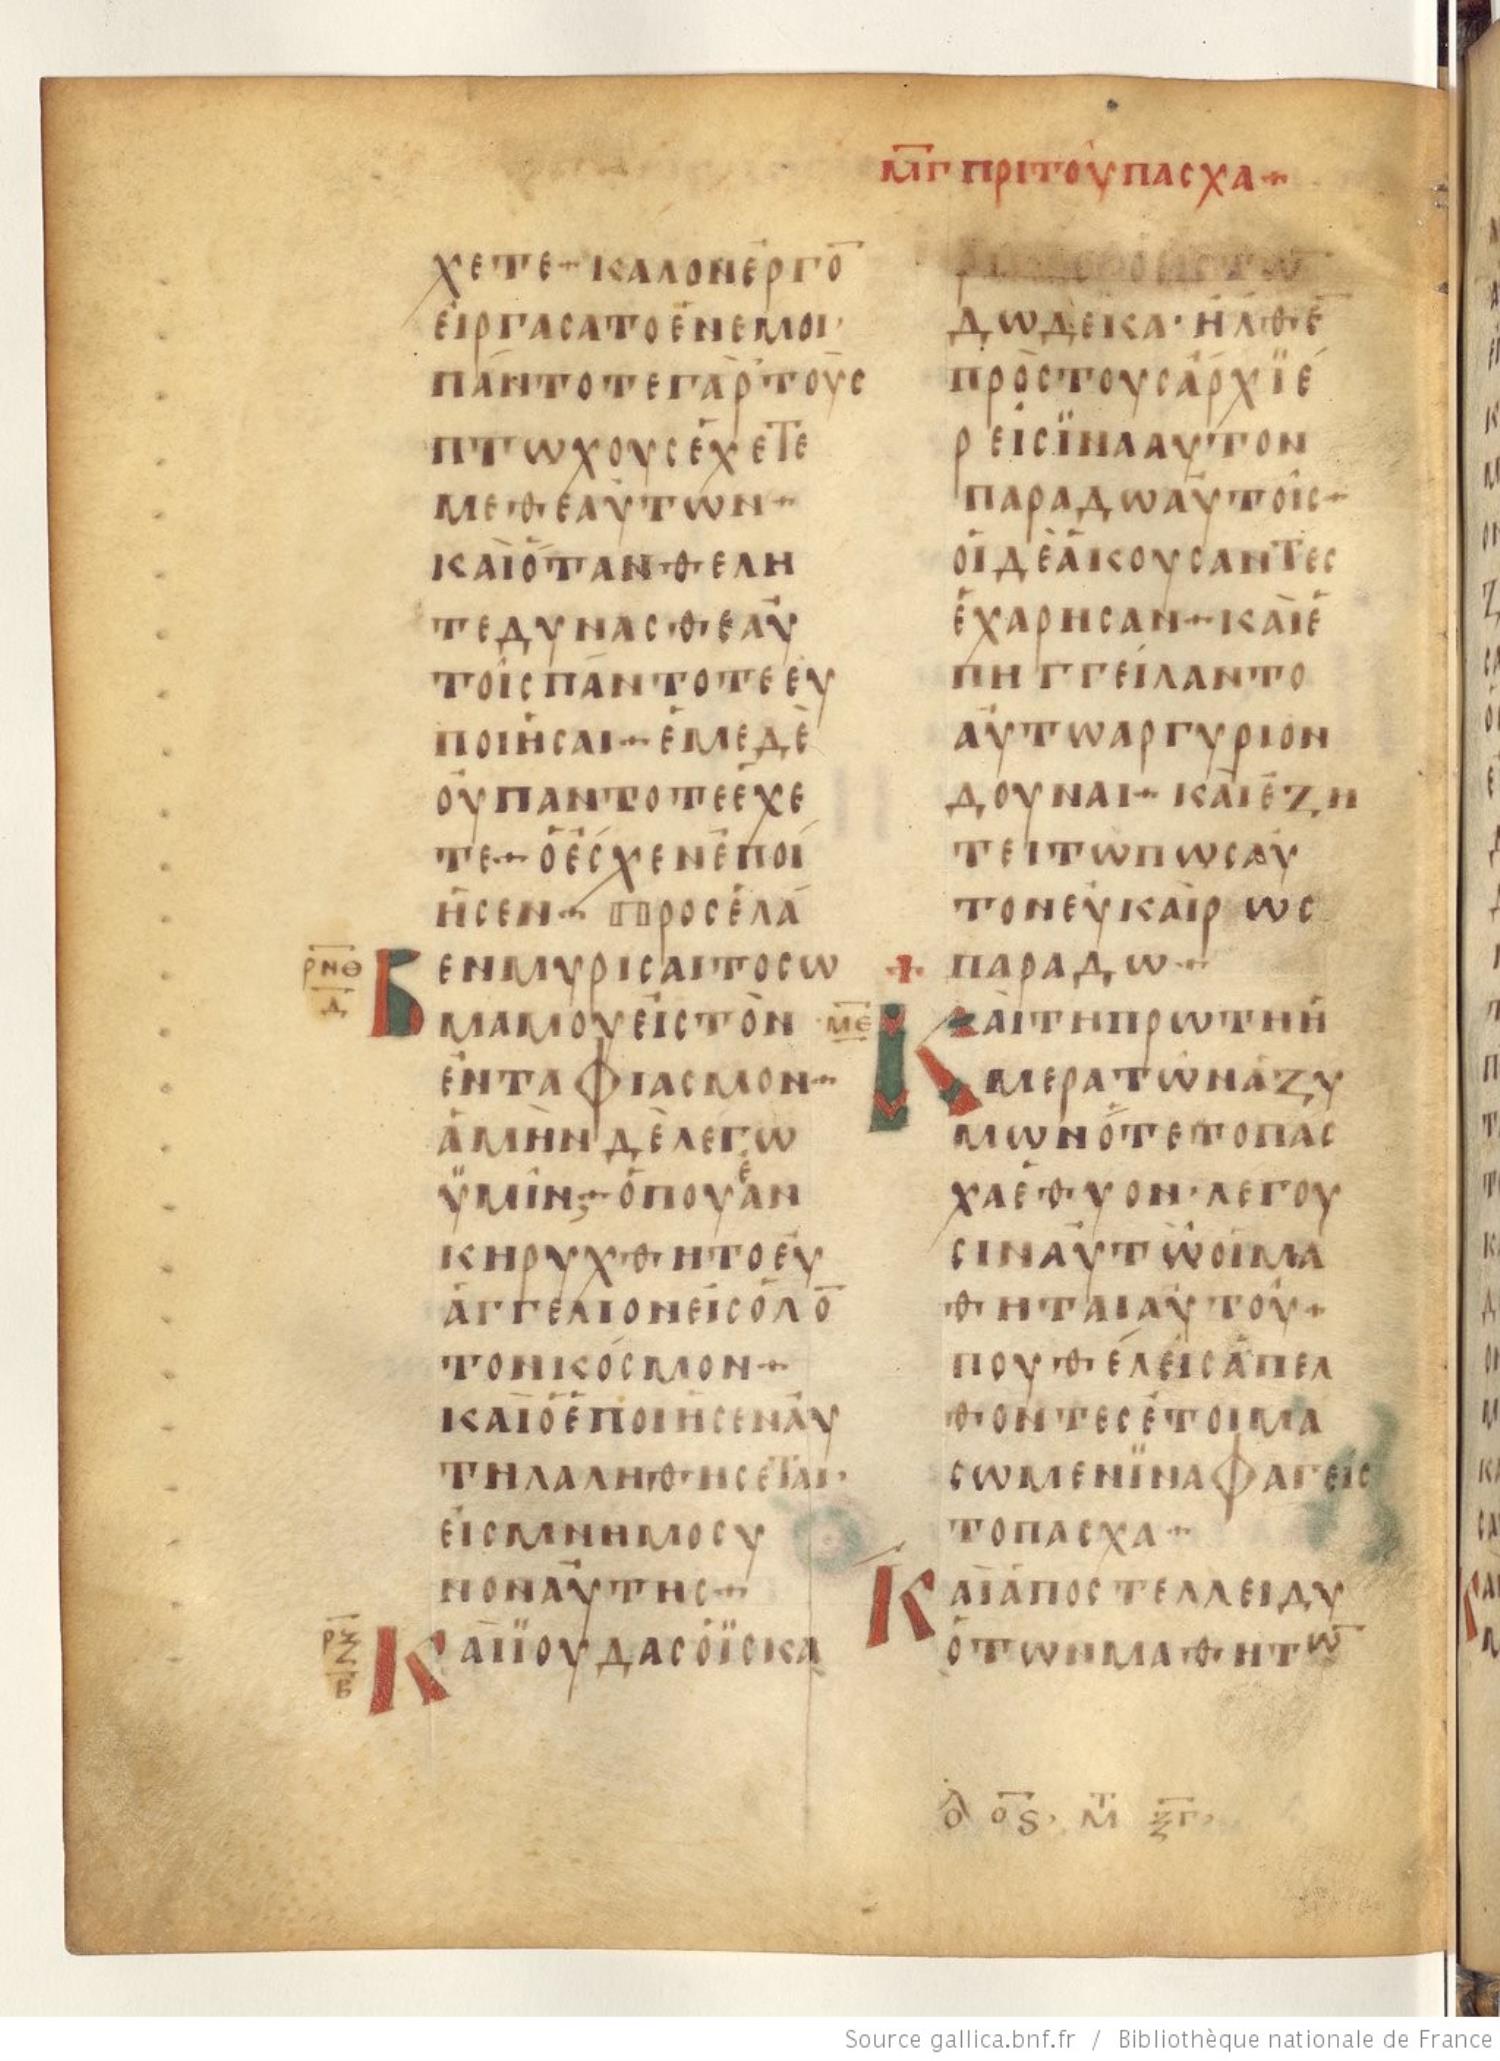 ΜΓ ΠΡΙ ΤΟΥ ΠΑΣΧΑ
ΧΕΤΕ· ΚΑΛΟΝ ΕΡΓΟ̅
ΕΙΡΓΑΣΑΤΟ ΕΝ ΕΜΟΙ·
ΠΑΝΤΟΤΕ ΓΑΡ ΤΟΥΣ
ΠΤΩΧΟΥΣ ΕΧΕΤΕ
ΜΕΘ ΕΑΥΤΩΝ·
ΚΑΙ ΟΤΑΝ ΘΕΛΗ
ΤΕ ΔΥΝΑΣΘΕ ΑΥ
ΤΟΙΣ ΠΑΝΤΟΤΕ ΕΥ
ΠΟΙΗΣΑΙ· ΕΜΕ ΔΕ
ΟΥ ΠΑΝΤΟΤΕ ΕΧΕ
ΤΕ· Ο ΕΣΧΕΝ ΕΠΟΙ
ΗΣΕΝ· ΠΡΟΣΕΛΑ
ΡΝΘ
Δ
ΒΕΝ ΜΥΡΙΣΑΙ ΤΟ ΣΩ
ΜΑ ΜΟΥ ΕΙΣ ΤΟΝ
ΕΝΤΑΦΙΑΣΜΟΝ·
ΑΜΗΝ ΔΕ ΛΕΓΩ
ΥΜΙΝ· ΟΠΟΥ ΕΑΝ
ΚΗΡΥΧΘΗ ΤΟ ΕΥ
ΑΓΓΕΛΙΟΝ ΕΙΣ ΟΛΟ̅
ΤΟΝ ΚΟΣΜΟΝ·
ΚΑΙ Ο ΕΠΟΙΗΣΕΝ ΑΥ
ΤΗ ΛΑΛΗΘΗΣΕΤΑΙ·
ΕΙΣ ΜΝΗΜΟΣΥ
ΝΟΝ ΑΥΤΗΣ·
ΡΞ
Β
ΚΑΙ ΪΟΥΔΑΣ Ο ΪΣΚΑ
ΔΩΔΕΚΑ· ΗΛΘΕ̅
ΠΡΟΣ ΤΟΥΣ ΑΡΧΪΕ
ΡΕΙΣ ΪΝΑ ΑΥΤΟΝ
ΠΑΡΑΔΩ ΑΥΤΟΙΣ·
ΟΙ ΔΕ ΑΚΟΥΣΑΝΤΕΣ
ΕΧΑΡΗΣΑΝ· ΚΑΙ Ε
ΠΗΓΓΕΙΛΑΝΤΟ
ΑΥΤΩ ΑΡΓΥΡΙΟΝ
ΔΟΥΝΑΙ· ΚΑΙ ΕΖΗ
ΤΕΙ ΤΩ ΠΩΣ ΑΥ
ΤΟΝ ΕΥΚΑΙΡΩΣ
ΠΑΡΑΔΩ·
ΜΕ
ΚΑΙ ΤΗ ΠΡΩΤΗ Η
ΜΕΡΑ ΤΩΝ ΑΖΥ
ΜΩΝ ΟΤΕ ΤΟ ΠΑΣ
ΧΑ ΕΘΥΟΝ· ΛΕΓΟΥ
ΣΙΝ ΑΥΤΩ ΟΙ ΜΑ
ΘΗΤΑΙ ΑΥΤΟΥ·
ΠΟΥ ΘΕΛΕΙΣ ΑΠΕΛ
ΘΟΝΤΕΣ ΕΤΟΙΜΑ
ΣΩΜΕΝ ΪΝΑ ΦΑΓΕΙΣ
ΤΟ ΠΑΣΧΑ·
ΚΑΙ ΑΠΟΣΤΕΛΛΕΙ ΔΥ
Ο ΤΩΝ ΜΑΘΗΤΩ̅